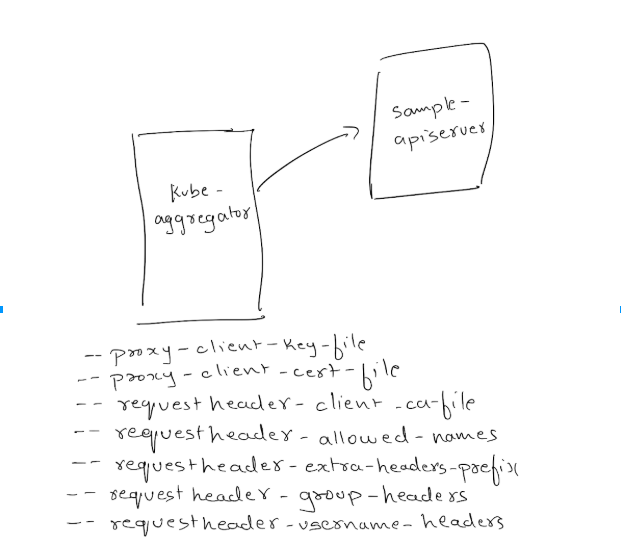 sample-
apiserver
Kube-
aggregator
--proxy-client-key-file
--proxy-client-cert-file
--requestheader-client-ca-file
--requestheader-allowed-names
--requestheader-extra-headers-prefix
--requestheader-group-headers
--requestheader-username-headers